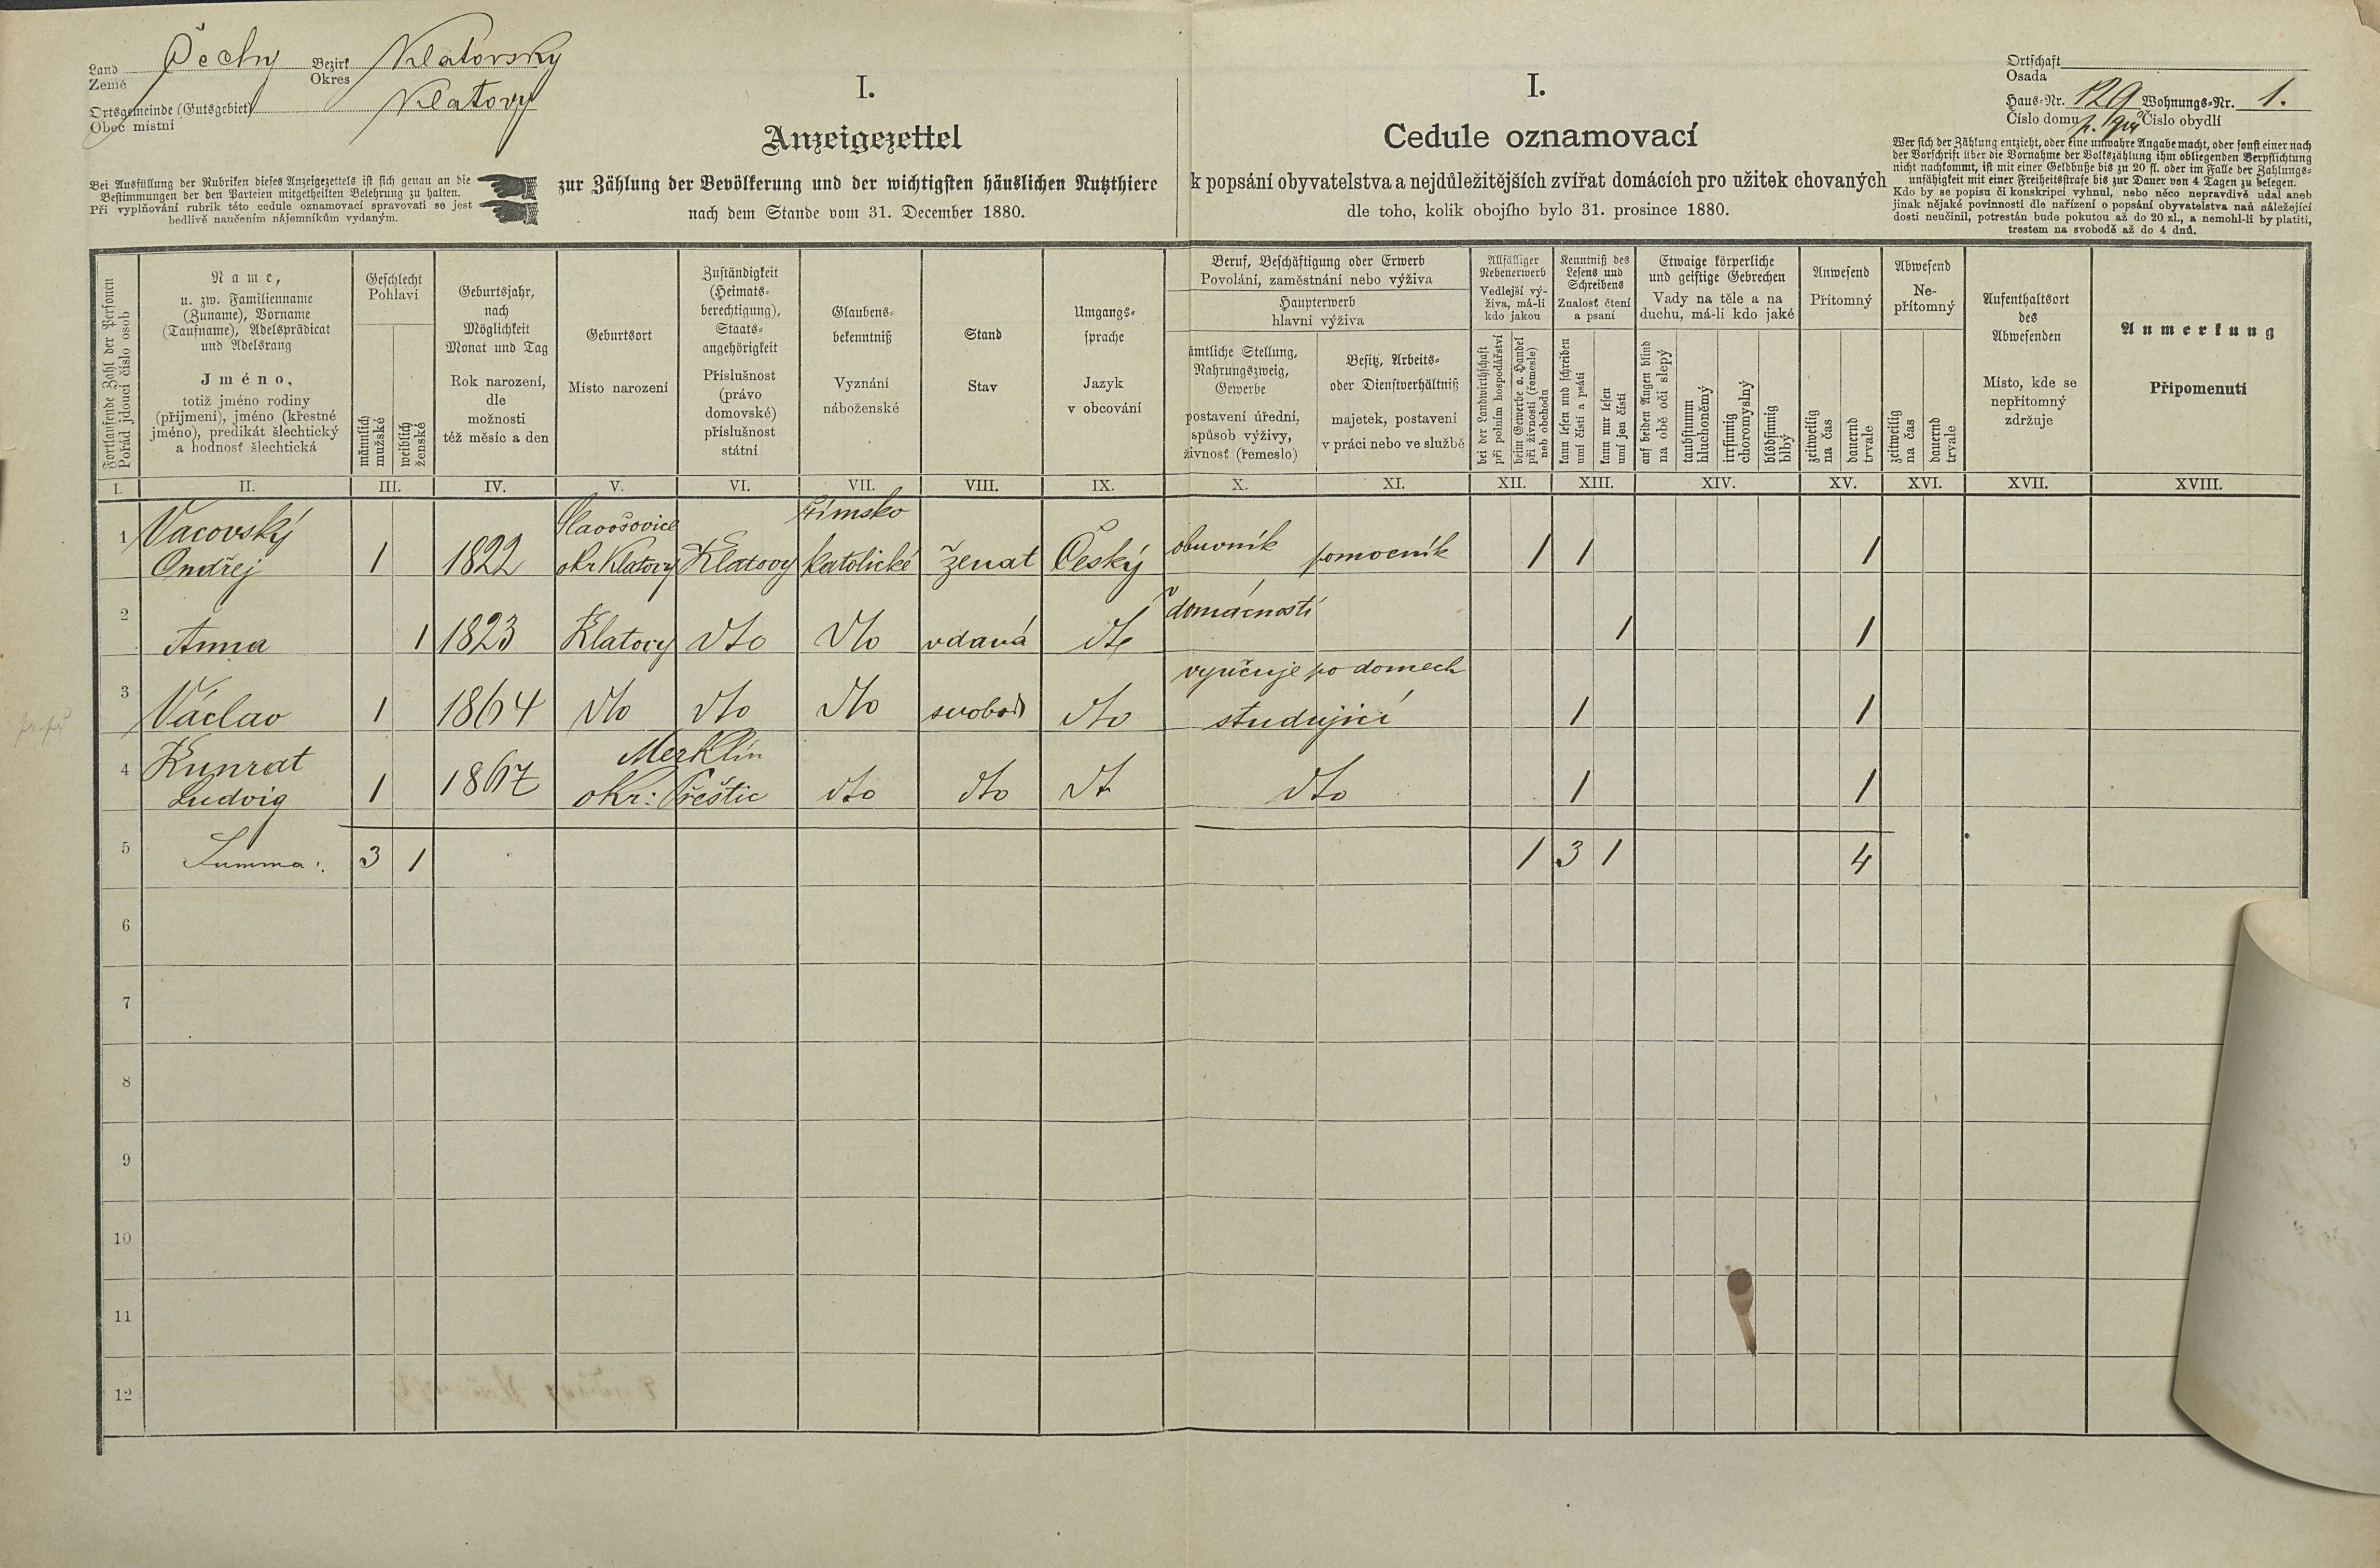 Land Čechy Bezirk Klatovský
Země Okres
Ortsgemeinde (Gutsgebiet) Klatovy
Obec místní
Bei Ausfüllung der Rubriken dieses Anzeigezettels ist sich genau an die
Bestimmungen der den Parteien mitgetheilten Belehrung zu halten.
Při vyplňování rubrik této cedule oznamovací spravovati se jest
bedlivě naučením nájemníkům vydaným.
I.
Anzeigezettel
zur Zählung der Bevölkerung und der wichtigsten häuslichen Nutzthiere
nach dem Stande vom 31. December 1880.
I.
Cedule oznamovací
k popsání obyvatelstva a nejdůležitějších zvířat domácích pro užitek chovaných
dle toho, kolik obojího bylo 31. prosince 1880.
Ortschaft
Osada
Haus-Nr. 129 Wohnungs-Nr. 1.
Číslo domu Číslo obydlí
Wer sich der Zählung entzieht, oder eine unwahre Angabe macht, oder sonst einer nach
der Vorschrift über die Vornahme der Volkszählung ihm obliegenden Verpflichtung
nicht nachkommt, ist mit einer Geldbuße bis zu 20 fl. oder im Falle der Zahlungs-
unfähigkeit mit einer Freiheitsstrafe bis zur Dauer von 4 Tagen zu belegen.
Kdo by se popisu či konskripci vyhnul, nebo něco nepravdivě udal aneb
jinak nějaké povinnosti dle nařízení o popsání obyvatelstva naň náležející
dosti neučinil, potrestán bude pokutou až do 20 zl., a nemohl-li by platiti,
trestem na svobodě až do 4 dnů.
Fortlaufende Zahl der Personen
Pořád jdoucí číslo osob
Name,
u. zw. Familienname
(Zuname), Vorname
(Taufname), Adelsprädicat
und Adelsrang
Jméno,
totiž jméno rodiny
(příjmení), jméno (křestné
jméno), predikát šlechtický
a hodnosť šlechtická
Geschlecht
Pohlaví
männlich
mužské
weiblich
ženské
Geburtsjahr,
nach
Möglichkeit
Monat und Tag
Rok narození,
dle
možnosti
též měsíc a den
Geburtsort
Místo narození
Zuständigkeit
(Heimats-
berechtigung),
Staats-
angehörigkeit
Příslušnost
(právo
domovské)
příslušnost
státní
Glaubens-
bekenntniß
Vyznání
náboženské
Stand
Stav
Umgangs-
sprache
Jazyk
v obcování
Beruf, Beschäftigung oder Erwerb
Povolání, zaměstnání nebo výživa
Haupterwerb
hlavní výživa
ämtliche Stellung,
Nahrungszweig,
Gewerbe
postavení úřední,
spůsob výživy,
živnosť (řemeslo)
Besitz, Arbeits-
oder Dienstverhältniß
majetek, postavení
v práci nebo ve službě
Allfälliger
Nebenerwerb
Vedlejší vý-
živa, má-li
kdo jakou
bei der Landwirthschaft
při polním hospodářství
beim Gewerbe o. Handel
při živnosti (řemesle)
neb obchodu
Kenntniß des
Lesens und
Schreibens
Znalosť čtení
a psaní
kann lesen und schreiben
umí čísti a psáti
kann nur lesen
umí jen čísti
Etwaige körperliche
und geistige Gebrechen
Vady na těle a na
duchu, má-li kdo jaké
auf beiden Augen blind
na obě oči slepý
taubstumm
hluchoněmý
irrsinnig
choromyslný
blödsinnig
blbý
Anwesend
Přítomný
zeitweilig
na čas
dauernd
trvale
Abwesend
Ne-
přítomný
zeitweilig
na čas
dauernd
trvale
Aufenthaltsort
des
Abwesenden
Místo, kde se
nepřítomný
zdržuje
Anmerkung
Připomenutí
I. II. III. IV. V. VI. VII. VIII. IX. X. XI. XII. XIII. XIV. XV. XVI. XVII. XVIII.
1 Vacovský Slavošovice římsko
Ondřej 1 1822 okr Klatovy Klatovy katolické ženat Český obuvník pomocník 1 1 1
2 v domácnosti
Anna 1 1823 Klatovy dto dto vdaná dto 1 1
3 vyučuje po domech
Václav 1 1864 dto dto dto svobod dto studující 1 1
4 Kunrat Merklín
Ludvig 1 1867 okr: Přeštic dto dto dt dto 1 1
5 Summa: 3 1 1 3 1 4
6
7
8
9
10
11
12